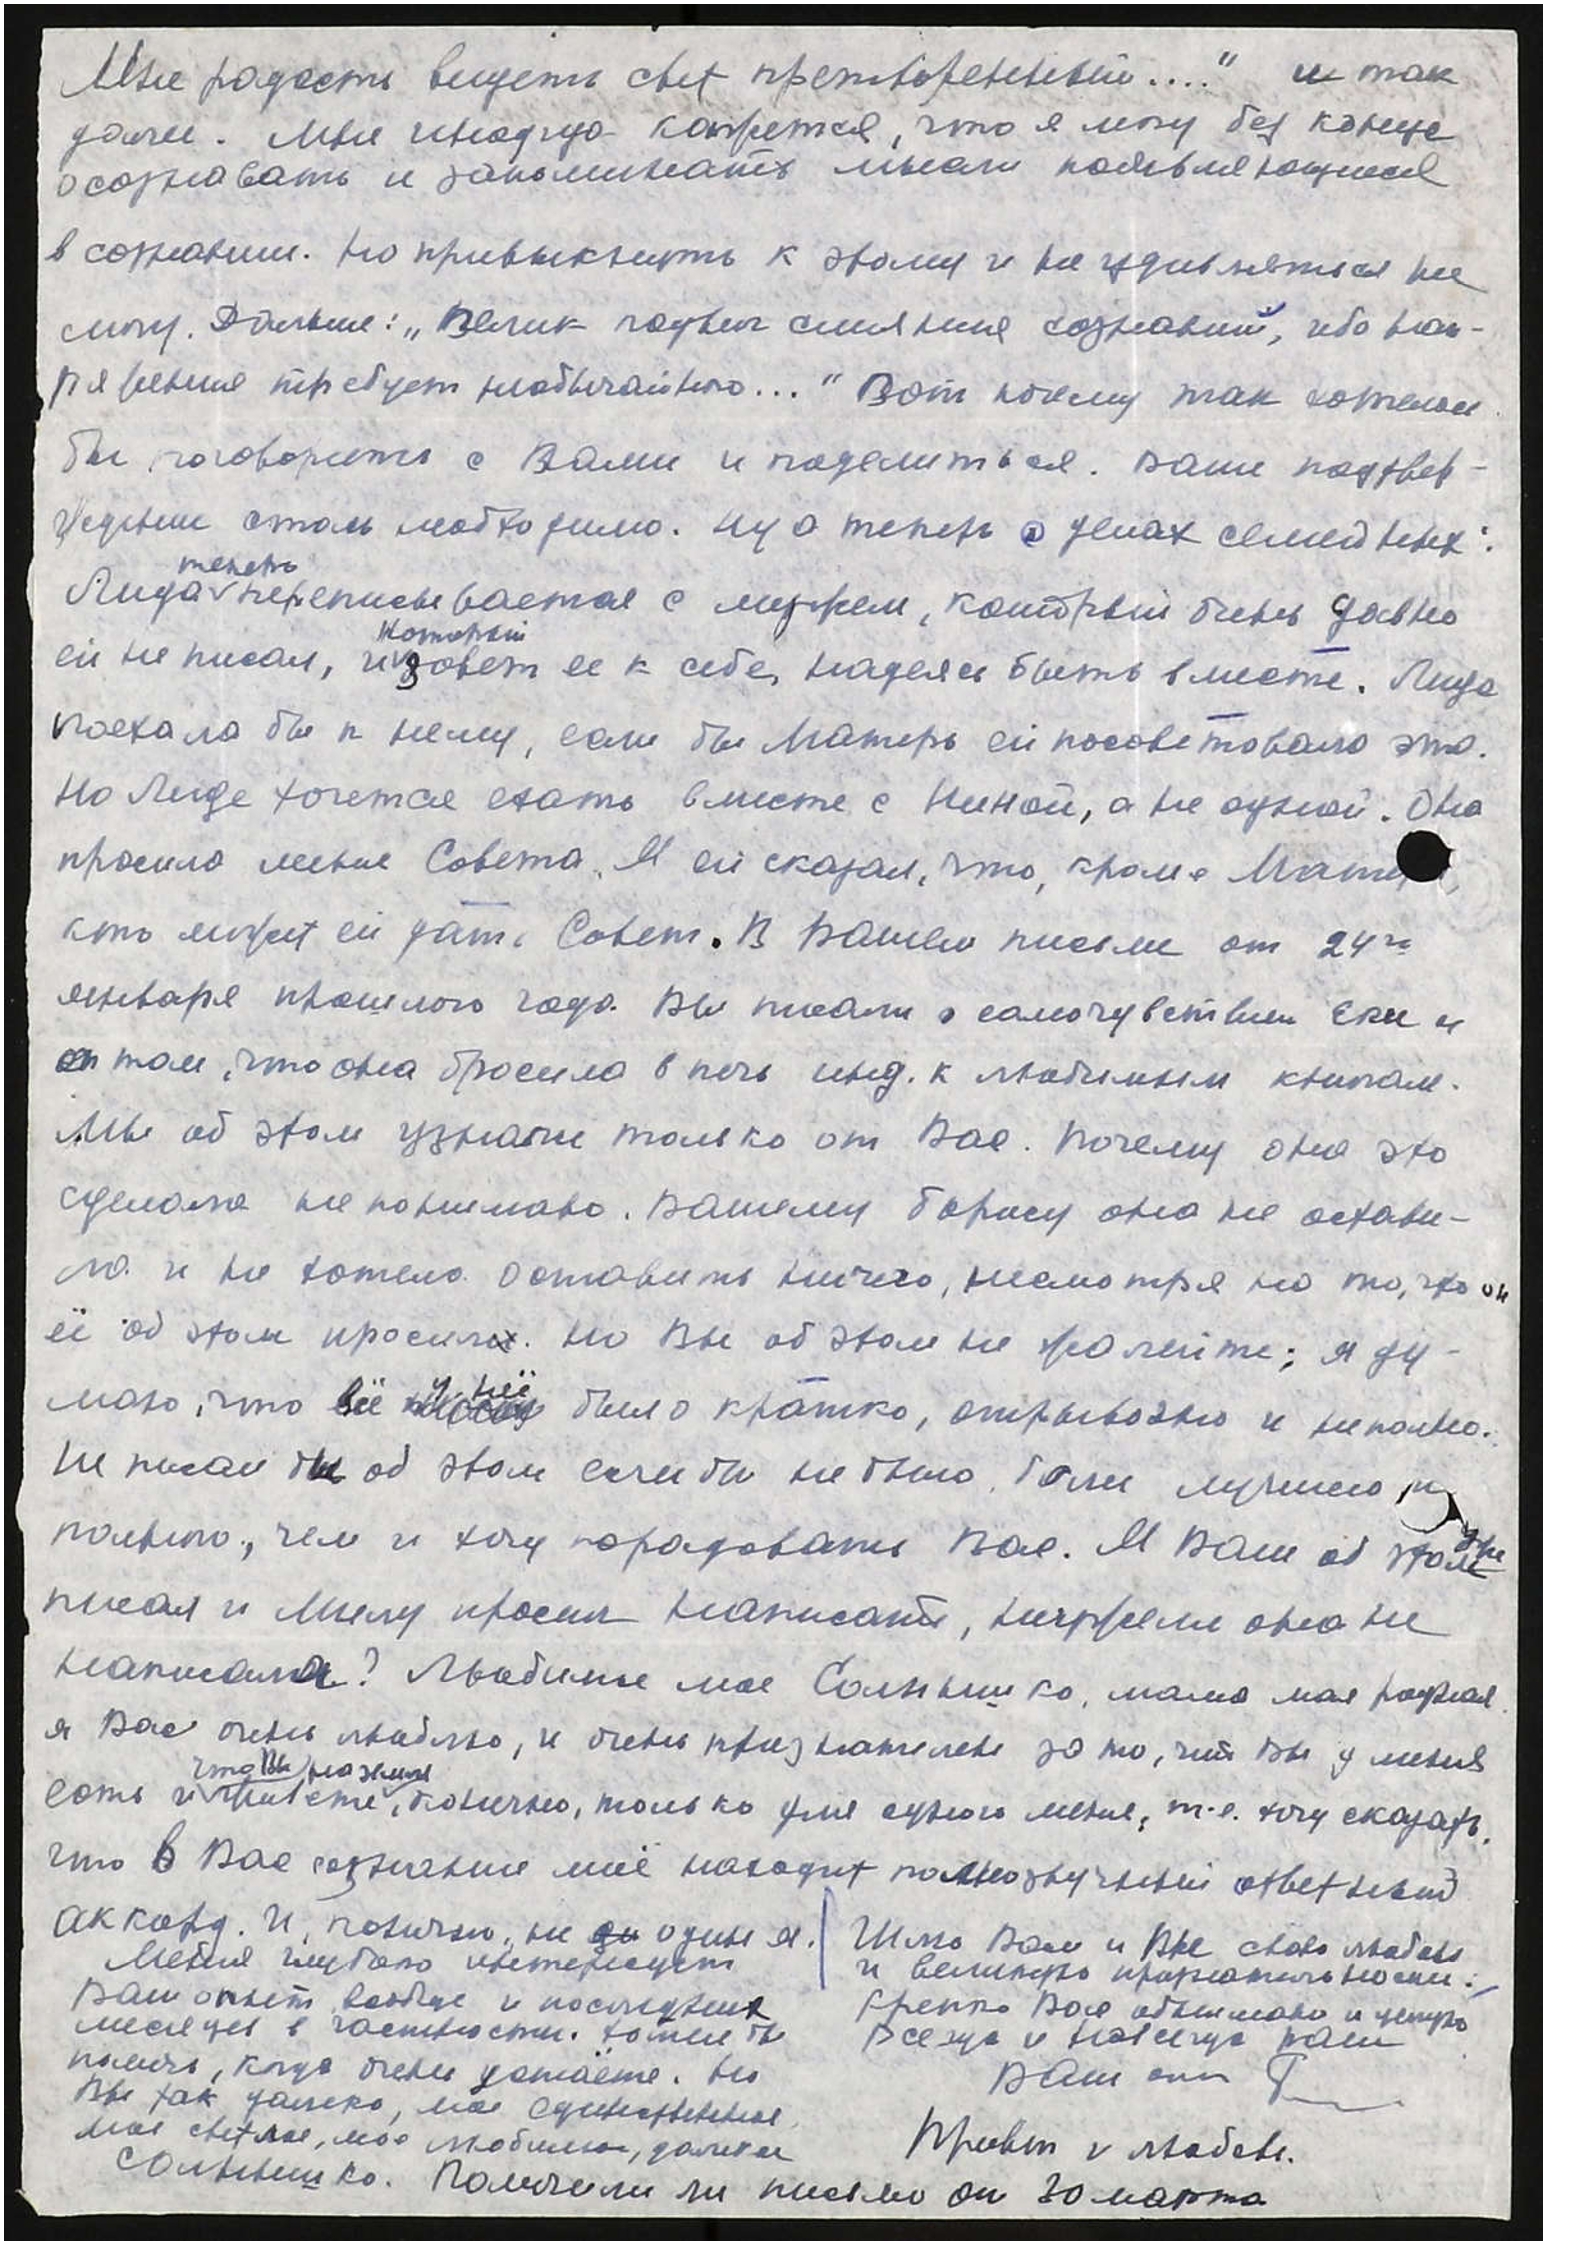 Мне радость видеть свет претворенный...." и так
далее. Мне иногда кажется, что я могу без конца
осознавать и запоминать мысли появляющиеся
в сознании. Но привыкнуть к этому и не удивляться не
могу. Дальше: „Велик подвиг слияния сознаний, ибо нап-
ряжения требует необычайного..." Вот почему так хотелось
бы поговорить с Вами и поделиться. Ваше подтвер-
ждение столь необходимо. Ну а теперь о делах семейных:
Лида теперь переписывается с мужем, который очень давно
ей не писал, и который зовет ее к себе, надеясь быть вместе. Лида
поехала бы к нему, если бы Матерь ей посоветовала это.
Но Лиде хочется ехать вместе с Ниной, а не одной. Она
просила меня Совета. Я ей сказал, что, кроме
кто может ей дать Совет. В Вашем письме от 24го
января прошлого года Вы писали о самочувствии Еки и
о том, что она бросила в печь инд. к любимым книгам.
Мы об этом узнали только от Вас. Почему она это
сделала не понимаю. Вашему Борису она не остави-
ла и не хотела оставить ничего, несмотря на то, что он
её об этом просил. Но Вы об этом не жалейте; я ду-
маю, что всё у неё было кратко, отрывочно и неполно.
Не писал бы об этом если бы не было более лучшего и
полного, чем и хочу порадовать Вас. Я Вам об этом уже
писал и Милу просил написать, неужели она не
написала? Любимое мое Солнышко, мама моя родная
я Вас очень люблю, и очень признателен за то, что Вы у меня
есть и что Вы на земле, конечно, только для одного меня, т.е. хочу сказать,
что в Вас сознание моё находит полнозвучный ответный
аккорд. И, конечно, не один я.
Меня глубоко интересует
Ваш опыт вообще и последних
месяцев в частности. Хотел бы
помочь, когда очень устаёте. Но
Вы так далеко, мое единственное,
мое светлое, мое любимое, далекое
Солнышко. Получили ли письмо от 30 марта
Шлю Вам и Вке свою любовь
и великую признательность.
Крепко Вас обнимаю и целую
Всегда и навсегда Ваш
Ваш
Привет и любовь.